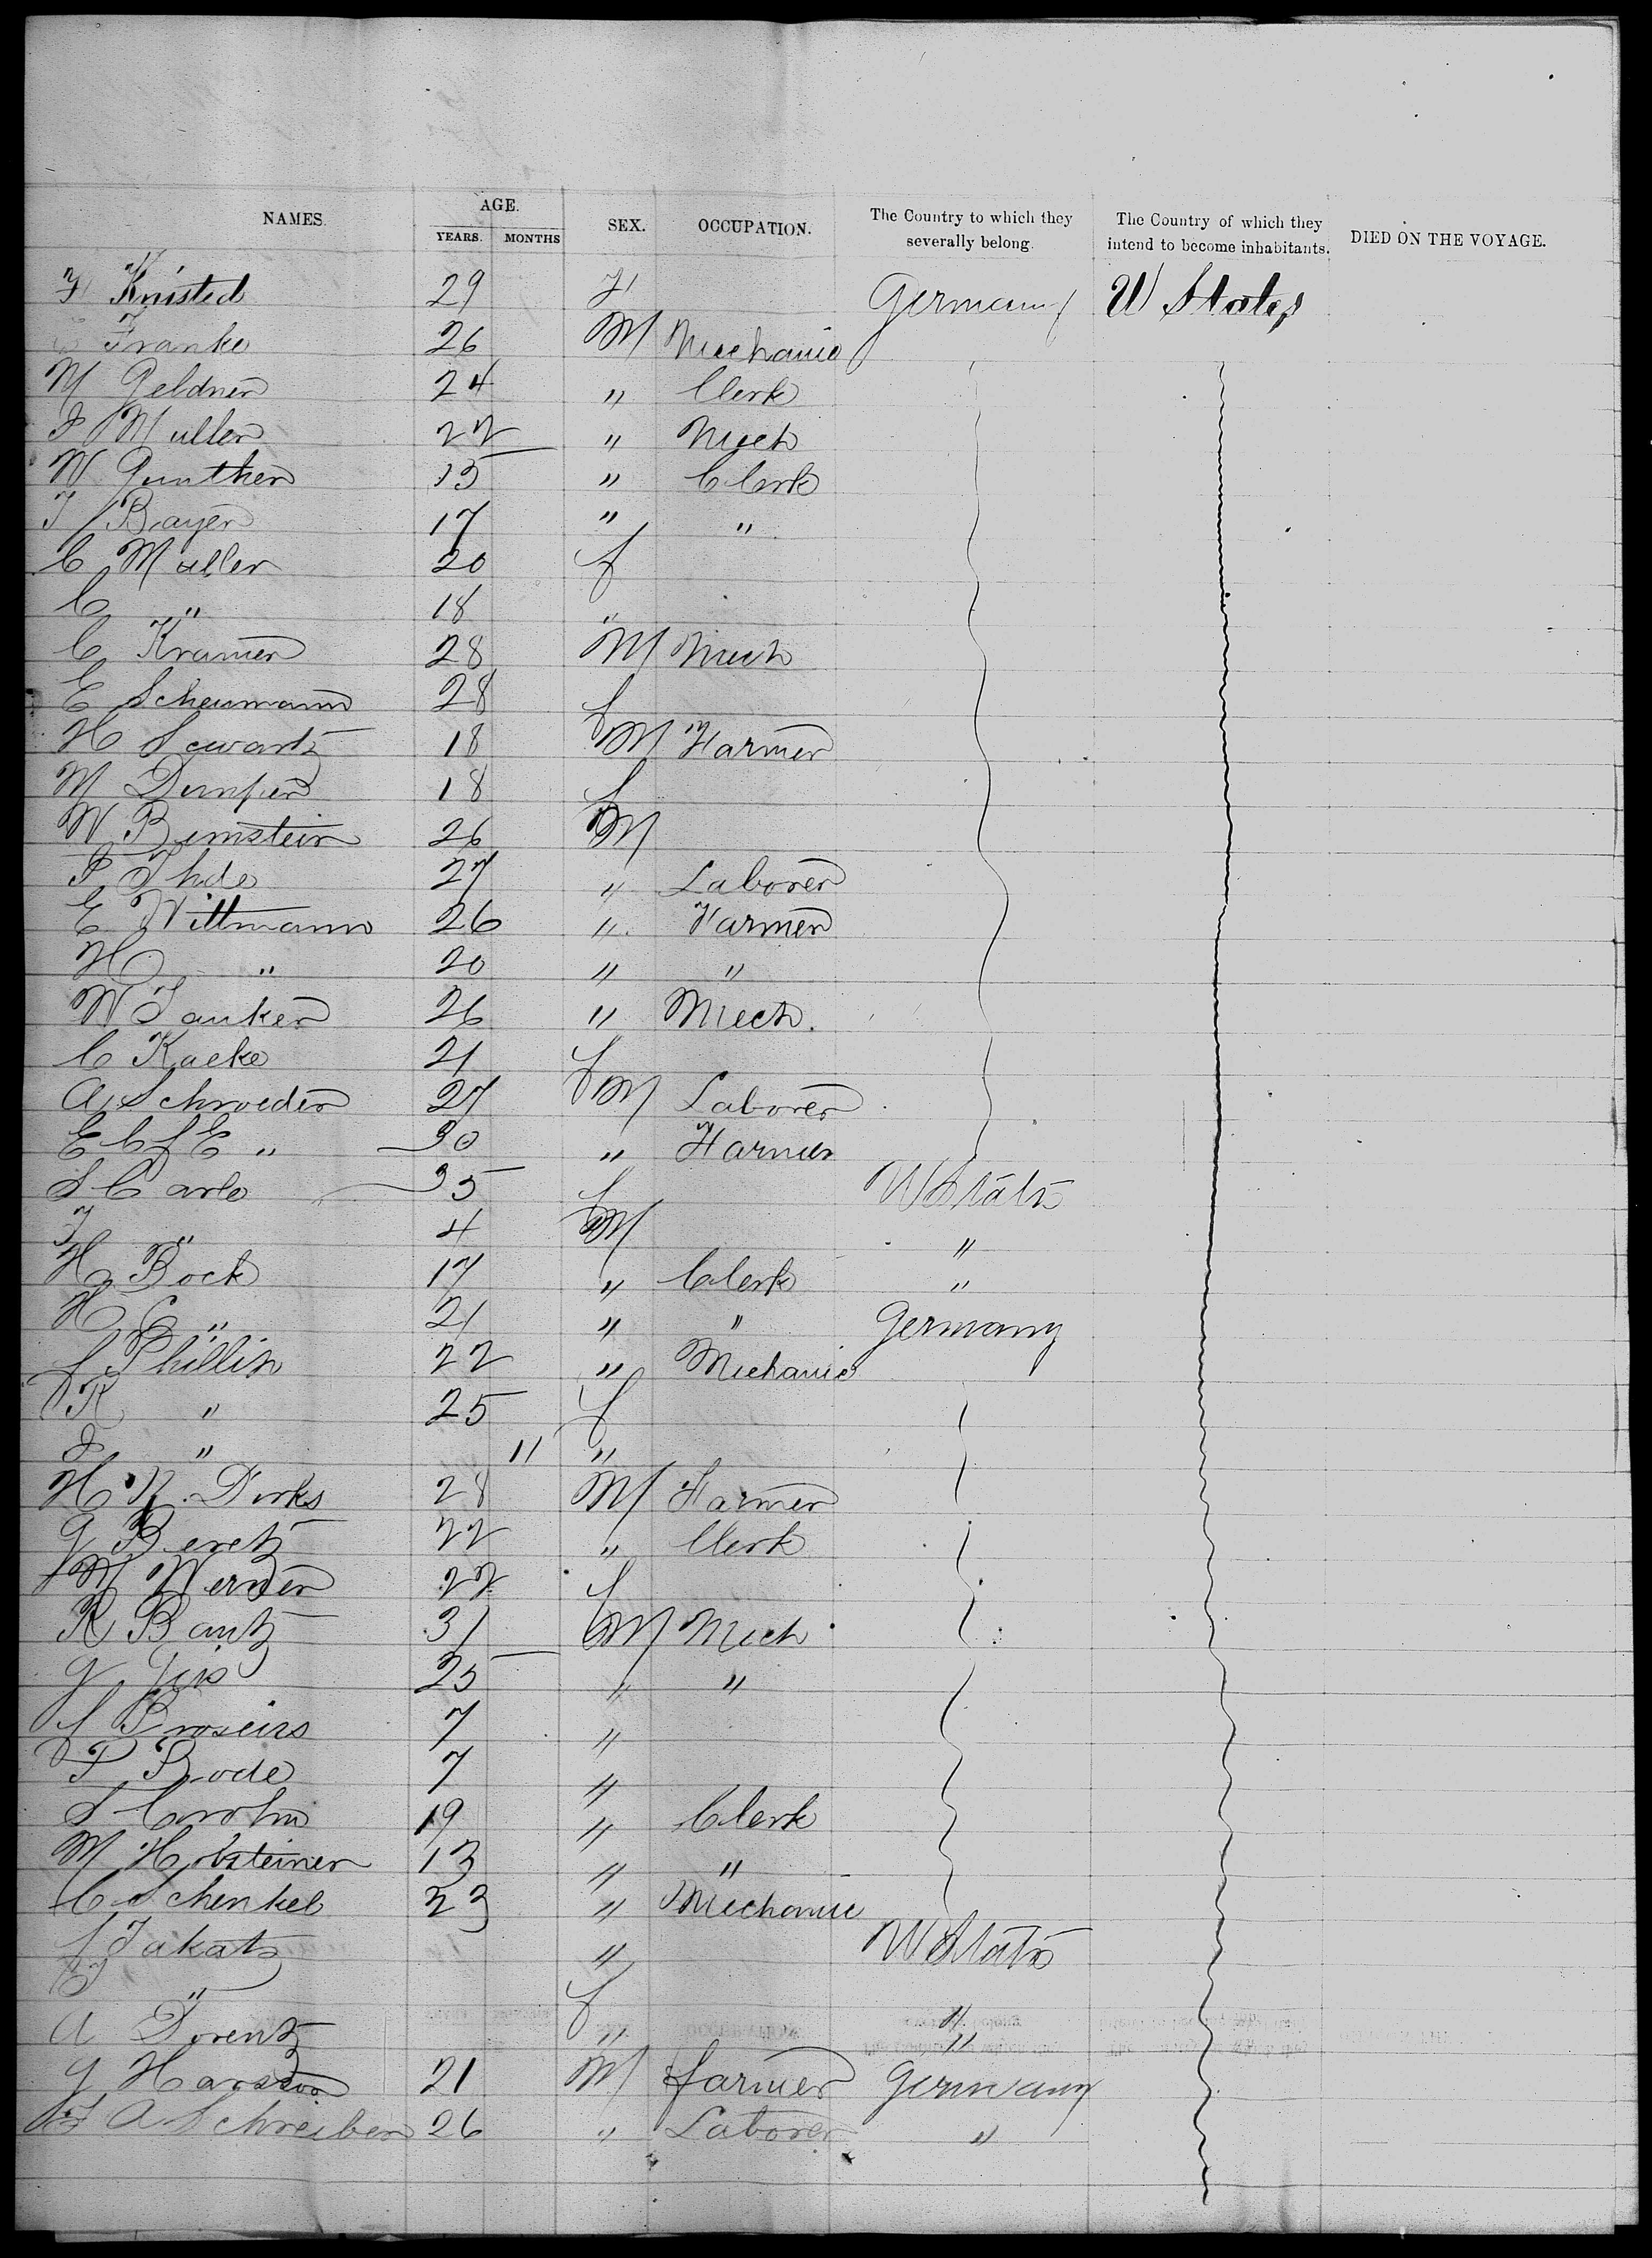 NAMES. AGE. SEX. OCCUPATION. The Country to which they severally belong. The Country of which they intend to become inhabitants. DIED ON THE VOYAGE.
YEARS. MONTHS
F Knisted 29 F Germany U States
Franke 26 M Mechanic
M Geldner 24 " Clerk
F Muller 22 " Mech
W Gunther 15 " Clerk
F Bayer 17 " "
C Muller 20 f
C " 18 "
C Kramer 28 M Mech
E Scheumann 28 f
H Scwartz 18 M Farmer
M Dumper 18 f
W Bernstein 26 M
P Ihde 27 " Laborer
E Wittmann 26 " Farmer
H " 20 " "
W Janker 26 " Mech.
C Kaeke 21 f
A Schroeder 27 M Laborer
E C f E " 30 " Farmer
S Carlo 35 f U States
F " 4 M "
H Bock 17 " Clerk "
H C " 21 " " Germany
f Phillip 22 " Mechanic
K " 25 f
F " 11 "
H R. Dirks 28 M Farmer
G Beretz 22 " Clerk
M Werner 22 f
R Bantz 31 M Mech
G 25 " "
f 7 "
P Bode 7 "
S 19 " Clerk
M 13 " "
C Schenkel 23 " Mechanic
f Jakatz " U States
" f "
A Lorentz " "
G 21 M farmer Germany
F A Schreiber 26 " Laborer "